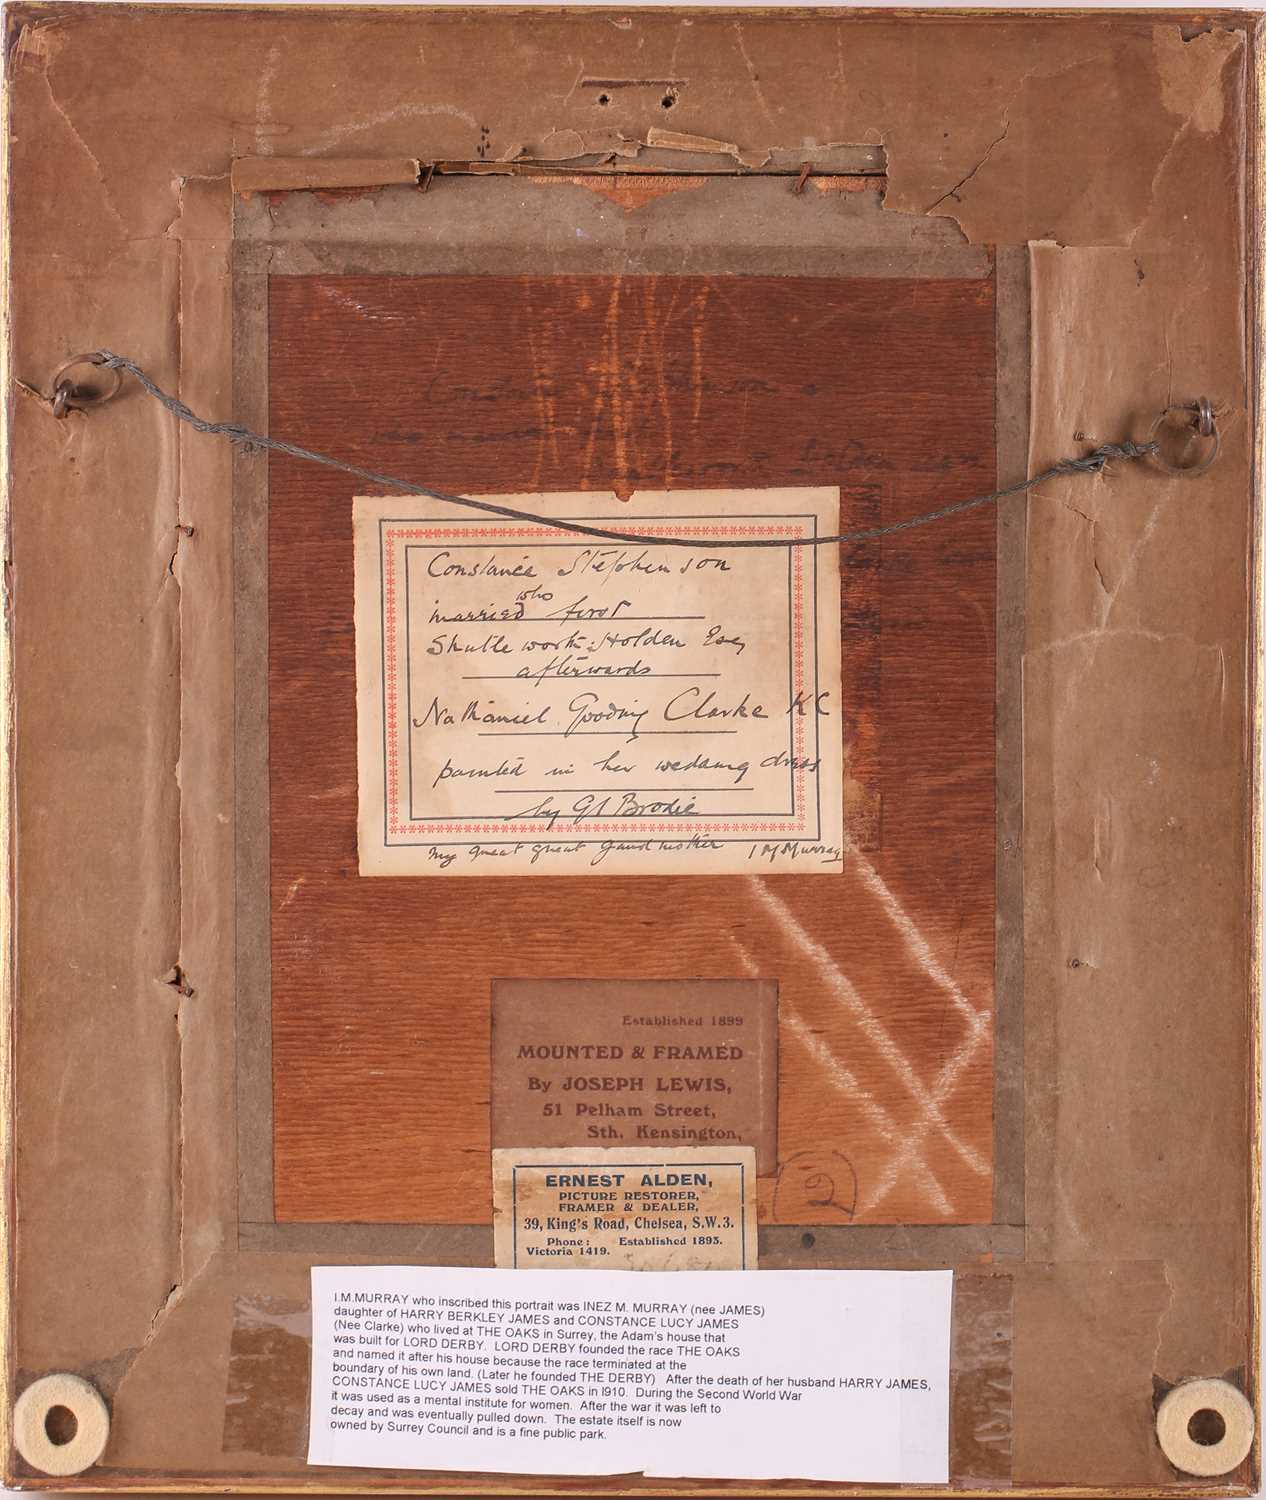 Constance Stephenson
who
married first
Shuttleworth : Holden Esq
afterwards
Nathaniel Gooding Clarke KC
painted in her wedding dress
by Gl Brodie
my great great grandmother I M Murray
Established 1899
MOUNTED & FRAMED
By JOSEPH LEWIS,
51 Pelham Street,
Sth. Kensington,
ERNEST ALDEN,
PICTURE RESTORER,
FRAMER & DEALER,
39, King's Road, Chelsea, S.W.3.
Phone: Established 1895.
Victoria 1419.
I.M.MURRAY who inscribed this portrait was INEZ M. MURRAY (nee JAMES)
daughter of HARRY BERKLEY JAMES and CONSTANCE LUCY JAMES
(Nee Clarke) who lived at THE OAKS in Surrey, the Adam's house that
was built for LORD DERBY. LORD DERBY founded the race THE OAKS
and named it after his house because the race terminated at the
boundary of his own land. (Later he founded THE DERBY) After the death of her husband HARRY JAMES,
CONSTANCE LUCY JAMES sold THE OAKS in I9I0. During the Second World War
it was used as a mental institute for women. After the war it was left to
decay and was eventually pulled down. The estate itself is now
owned by Surrey Council and is a fine public park.